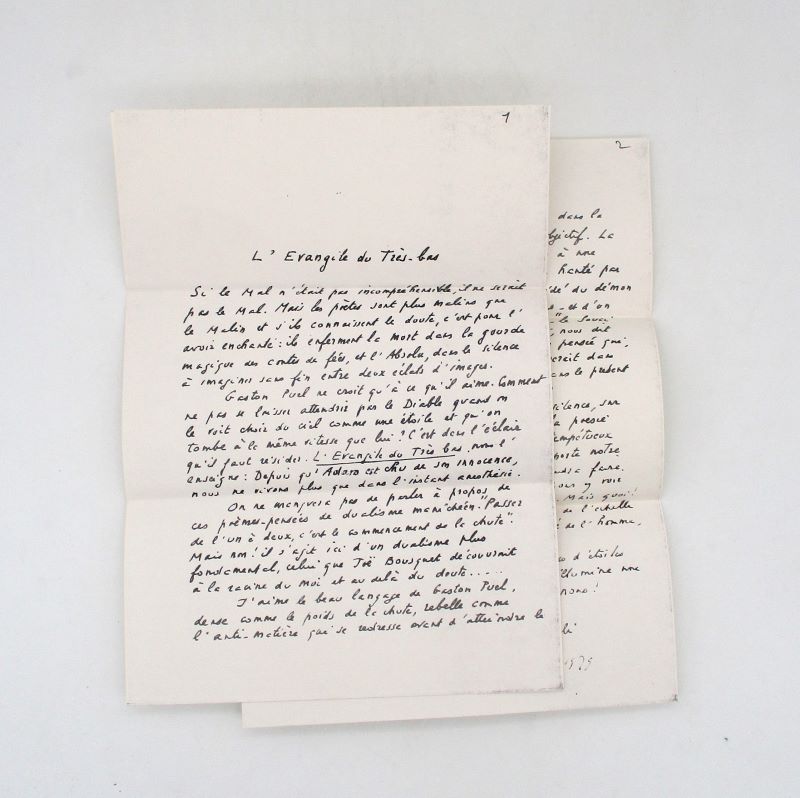 1
L' Evangile du Très-bas
Si le Mal n'était pas incompréhensible, il ne serait
pas le Mal. Mais les poètes sont plus malins que
le Malin et s'ils connaissent le doute, c'est pour l'
avoir enchanté : ils enferment la mort dans la gourde
magique des contes de fées, et l'Absolu, dans le silence
à imaginer sans fin entre deux éclats d'images.
Gaston Puel ne croit qu'à ce qu'il aime. Comment
ne pas se laisser attendrir par le Diable quand on
le voit choir du ciel comme une étoile et qu'on
tombe à la même vitesse que lui ? C'est dans l'éclair
qu'il faut résider. L'Evangile du Très bas, nous l'
enseigne : Depuis qu'Adam est chu de son innocence,
nous ne vivons plus que dans l'instant anesthésié.
On ne manquera pas de parler à propos de
ces poèmes-pensées de dualisme manichéen. "Passer
de l'un à deux, c'est le commencement de la chute".
Mais non ! il s'agit ici d'un dualisme plus
fondamental, celui que Joë Bousquet découvrait
à la racine du moi et au delà du doute.....
J'aime le beau langage de Gaston Puel,
dense comme le poids de la chute, rebelle comme
l'anti-matière qui se redresse avant d'atteindre le
2
dans la
objectif. La
à une
hanté par
du démon
et d'on
le Savoir
nous dit
pensée qui,
serait dans
dans le présent
silence, sur
la
porte notre
faire.
voir
Mais quoi !
de l'échelle
de l'homme,
d'étoiles
illumine une